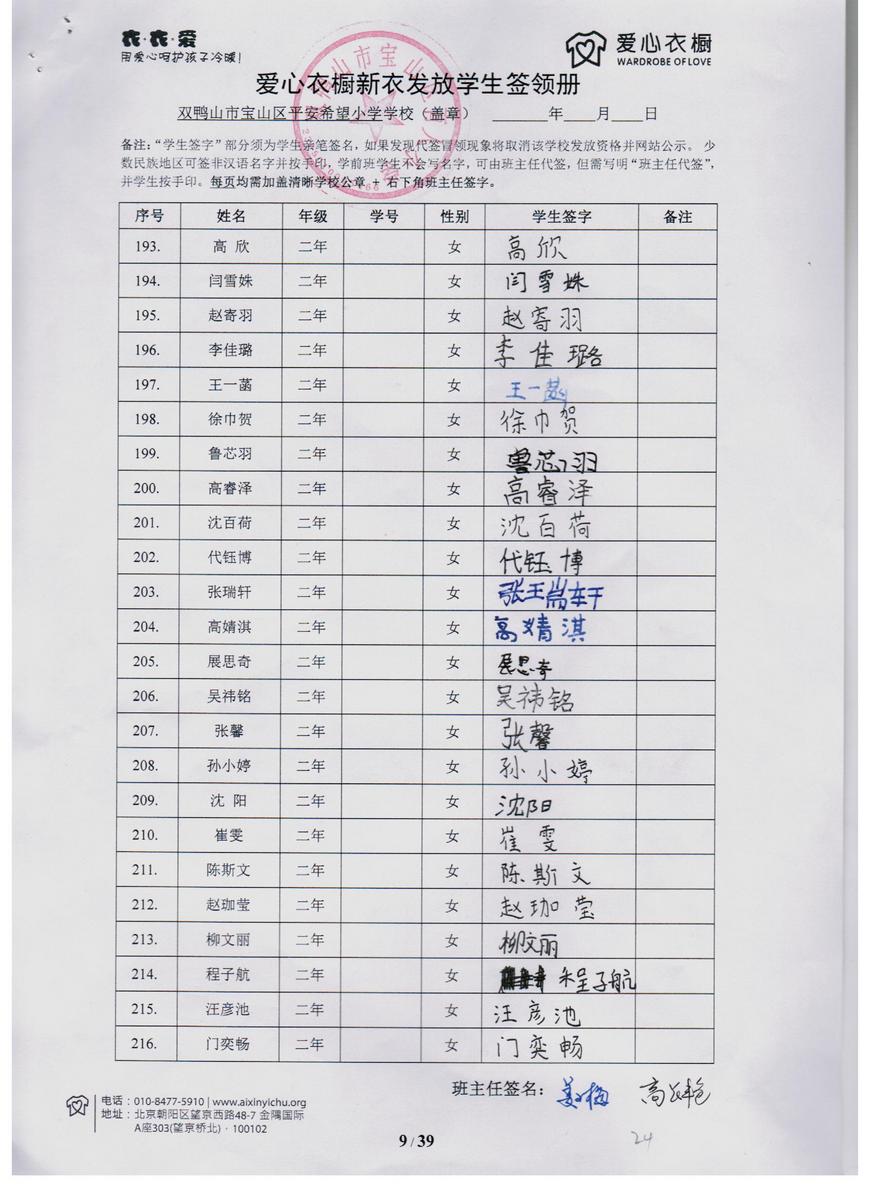 衣·衣·爱
用爱心呵护孩子冷暖!
爱心衣橱
WARDROBE OF LOVE
爱心衣橱新衣发放学生签领册
双鸭山市宝山区平安希望小学学校(盖章) ______年____月____日
备注:“学生签字”部分须为学生亲笔签名,如果发现代签冒领现象将取消该学校发放资格并网站公示。 少
数民族地区可签非汉语名字并按手印,学前班学生不会写名字,可由班主任代签,但需写明“班主任代签”,
并学生按手印。每页均需加盖清晰学校公章 + 右下角班主任签字。
序号 姓名 年级 学号 性别 学生签字 备注
193. 高 欣 二年 女 高欣
194. 闫雪姝 二年 女 闫雪姝
195. 赵寄羽 二年 女 赵寄羽
196. 李佳璐 二年 女 李佳璐
197. 王一菡 二年 女 王一菡
198. 徐巾贺 二年 女 徐巾贺
199. 鲁芯羽 二年 女 鲁芯羽
200. 高睿泽 二年 女 高睿泽
201. 沈百荷 二年 女 沈百荷
202. 代钰博 二年 女 代钰博
203. 张瑞轩 二年 女 张瑞轩
204. 高婧淇 二年 女 高婧淇
205. 展思奇 二年 女 展思奇
206. 吴祎铭 二年 女 吴祎铭
207. 张馨 二年 女 张馨
208. 孙小婷 二年 女 孙小婷
209. 沈 阳 二年 女 沈阳
210. 崔雯 二年 女 崔雯
211. 陈斯文 二年 女 陈斯文
212. 赵珈莹 二年 女 赵珈莹
213. 柳文丽 二年 女 柳文丽
214. 程子航 二年 女 程子航
215. 汪彦池 二年 女 汪彦池
216. 门奕畅 二年 女 门奕畅
班主任签名:
电话:010-8477-5910 | www.aixinyichu.org
地址:北京朝阳区望京西路48-7 金隅国际
A座303(望京桥北)· 100102
9 / 39
24